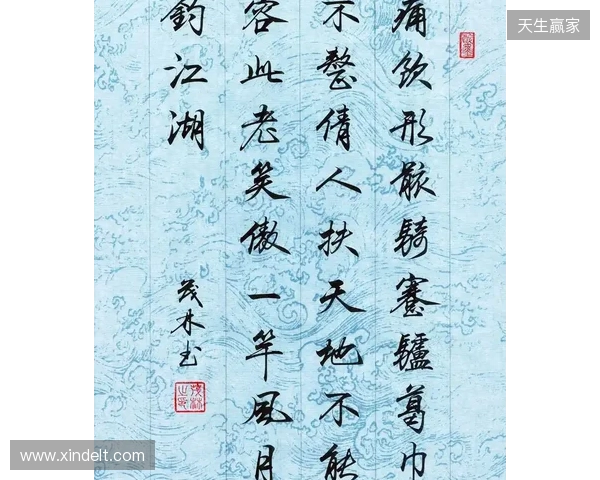 痛饮形骸騎蹇驢葛巾
不整倩人扶天地不能
容此老笑傲一竿風月
釣江湖
茂林书
天生赢家
www.xindelt.com